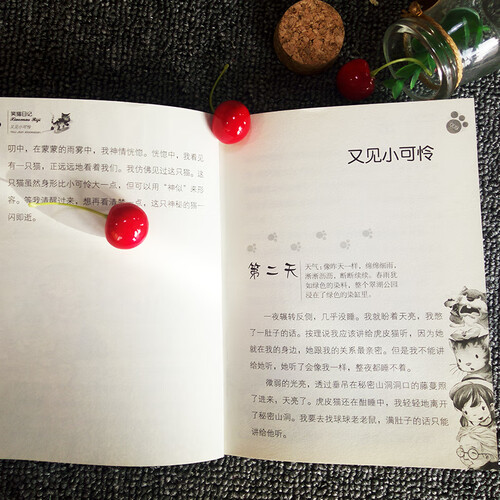 笑猫日记
又见小可怜
叨中，在蒙蒙的雨雾中，我神情恍惚。恍惚中，我看见
有一只猫，正远远地看着我们。我仿佛见过这只猫。这
只猫虽然身形比小可怜大一点，但可以用“神似”来形
容。等我清醒过来，想再看清楚一点，这只神秘的猫一
闪即逝。
又见小可怜
第二天
天气：像昨天一样，绵绵细雨，
淅淅沥沥，断断续续。春雨犹
如绿色的染料，整个翠湖公园
浸在了绿色的染缸里。
一夜辗转反侧，几乎没睡。我就盼着天亮，我憋
了一肚子的话。按理说我应该讲给虎皮猫听，因为她
就在我的身边，她跟我的关系最亲密。但是我不能讲
给她听，她听了会像我一样，整夜都睡不着。
微弱的光亮，透过垂吊在秘密山洞洞口的藤蔓照
了进来，天亮了。虎皮猫还在酣睡中，我轻轻地离开
了秘密山洞。我要去找球球老老鼠，满肚子的话只能
讲给他听。